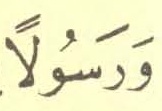 وَرَسُولًا